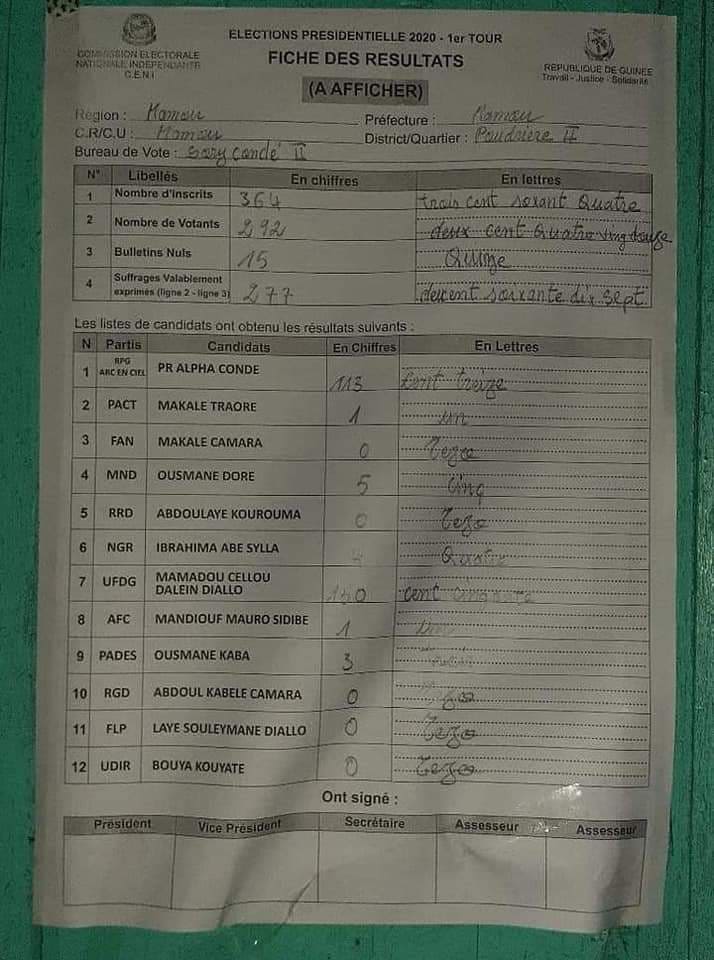 COMMISSION ELECTORALE
NATIONALE INDEPENDANTE
C.E.N.I
ELECTIONS PRESIDENTIELLE 2020 - 1er TOUR
FICHE DES RESULTATS
(A AFFICHER)
REPUBLIQUE DE GUINEE
Travail - Justice - Solidarité
Région : Mamou Préfecture : Mamou
C.R/C.U : Mamou District/Quartier : Poudrière II
Bureau de Vote : Sory Condé II
N° Libellés En chiffres En lettres
1 Nombre d'Inscrits 364 trois cent soixant Quatre
2 Nombre de Votants 292 deux cent Quatre vingt douze
3 Bulletins Nuls 15 Quinze
4 Suffrages Valablement exprimés (ligne 2 - ligne 3) 277 deux cent soixante dix sept
Les listes de candidats ont obtenu les résultats suivants :
N Partis Candidats En Chiffres En Lettres
1 RPG ARC EN CIEL PR ALPHA CONDE 113 Cent treize
2 PACT MAKALE TRAORE 1 un
3 FAN MAKALE CAMARA 0 Zero
4 MND OUSMANE DORE 5 Cinq
5 RRD ABDOULAYE KOUROUMA 0 Zero
6 NGR IBRAHIMA ABE SYLLA 4 Quatre
7 UFDG MAMADOU CELLOU DALEIN DIALLO 150 cent cinquante
8 AFC MANDIOUF MAURO SIDIBE 1 un
9 PADES OUSMANE KABA 3
10 RGD ABDOUL KABELE CAMARA 0 Zero
11 FLP LAYE SOULEYMANE DIALLO 0 Zero
12 UDIR BOUYA KOUYATE 0 Zero
Ont signé :
Président Vice Président Secrétaire Assesseur Assesseur